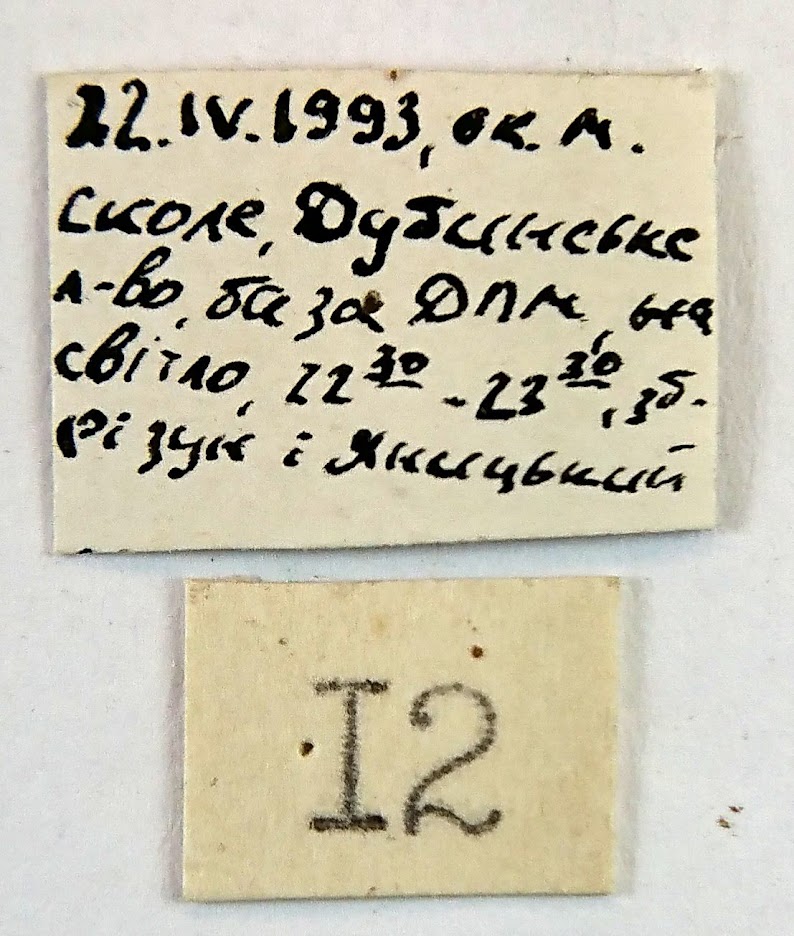 22.IV.1993, ок. м.
Сколе, Дубинське
л-во, база ДПМ, на
світло, 22³⁰-23³⁰, зб.
Різун і Яницький
I2